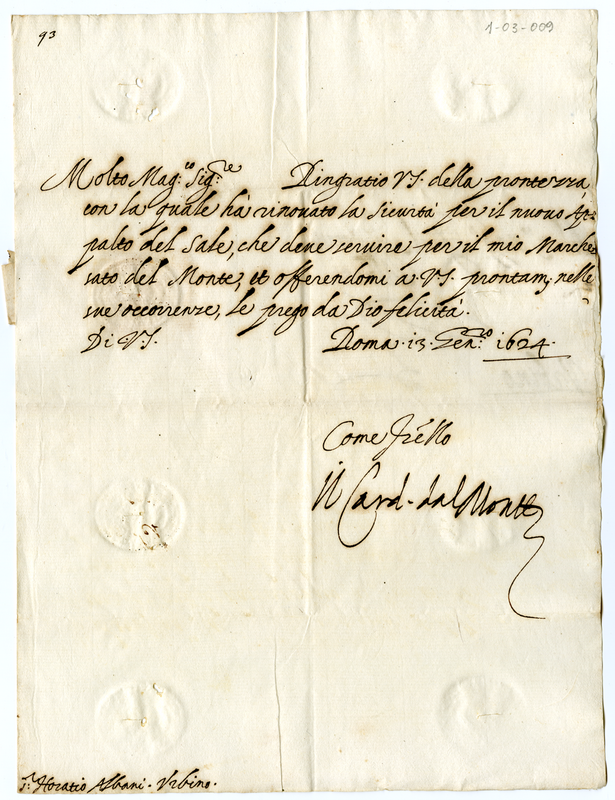 93
1-03-009
Molto Mag.co Sig.re Ringratio V.S. della prontezza,
con la quale hà rinovato la sicurtà per il nuovo Ap-
palto del Sale, che deve servire per il mio Marche-
sato del Monte, et offerendomi a V.S. prontam; nelle
sue occorrenze, le prego da Dio felicità.
Di V.S. Roma 13. Gen.ro 1624.
Come fr̃ello
Il Card. dal Monte
S.r Horatio Albani. Urbino.